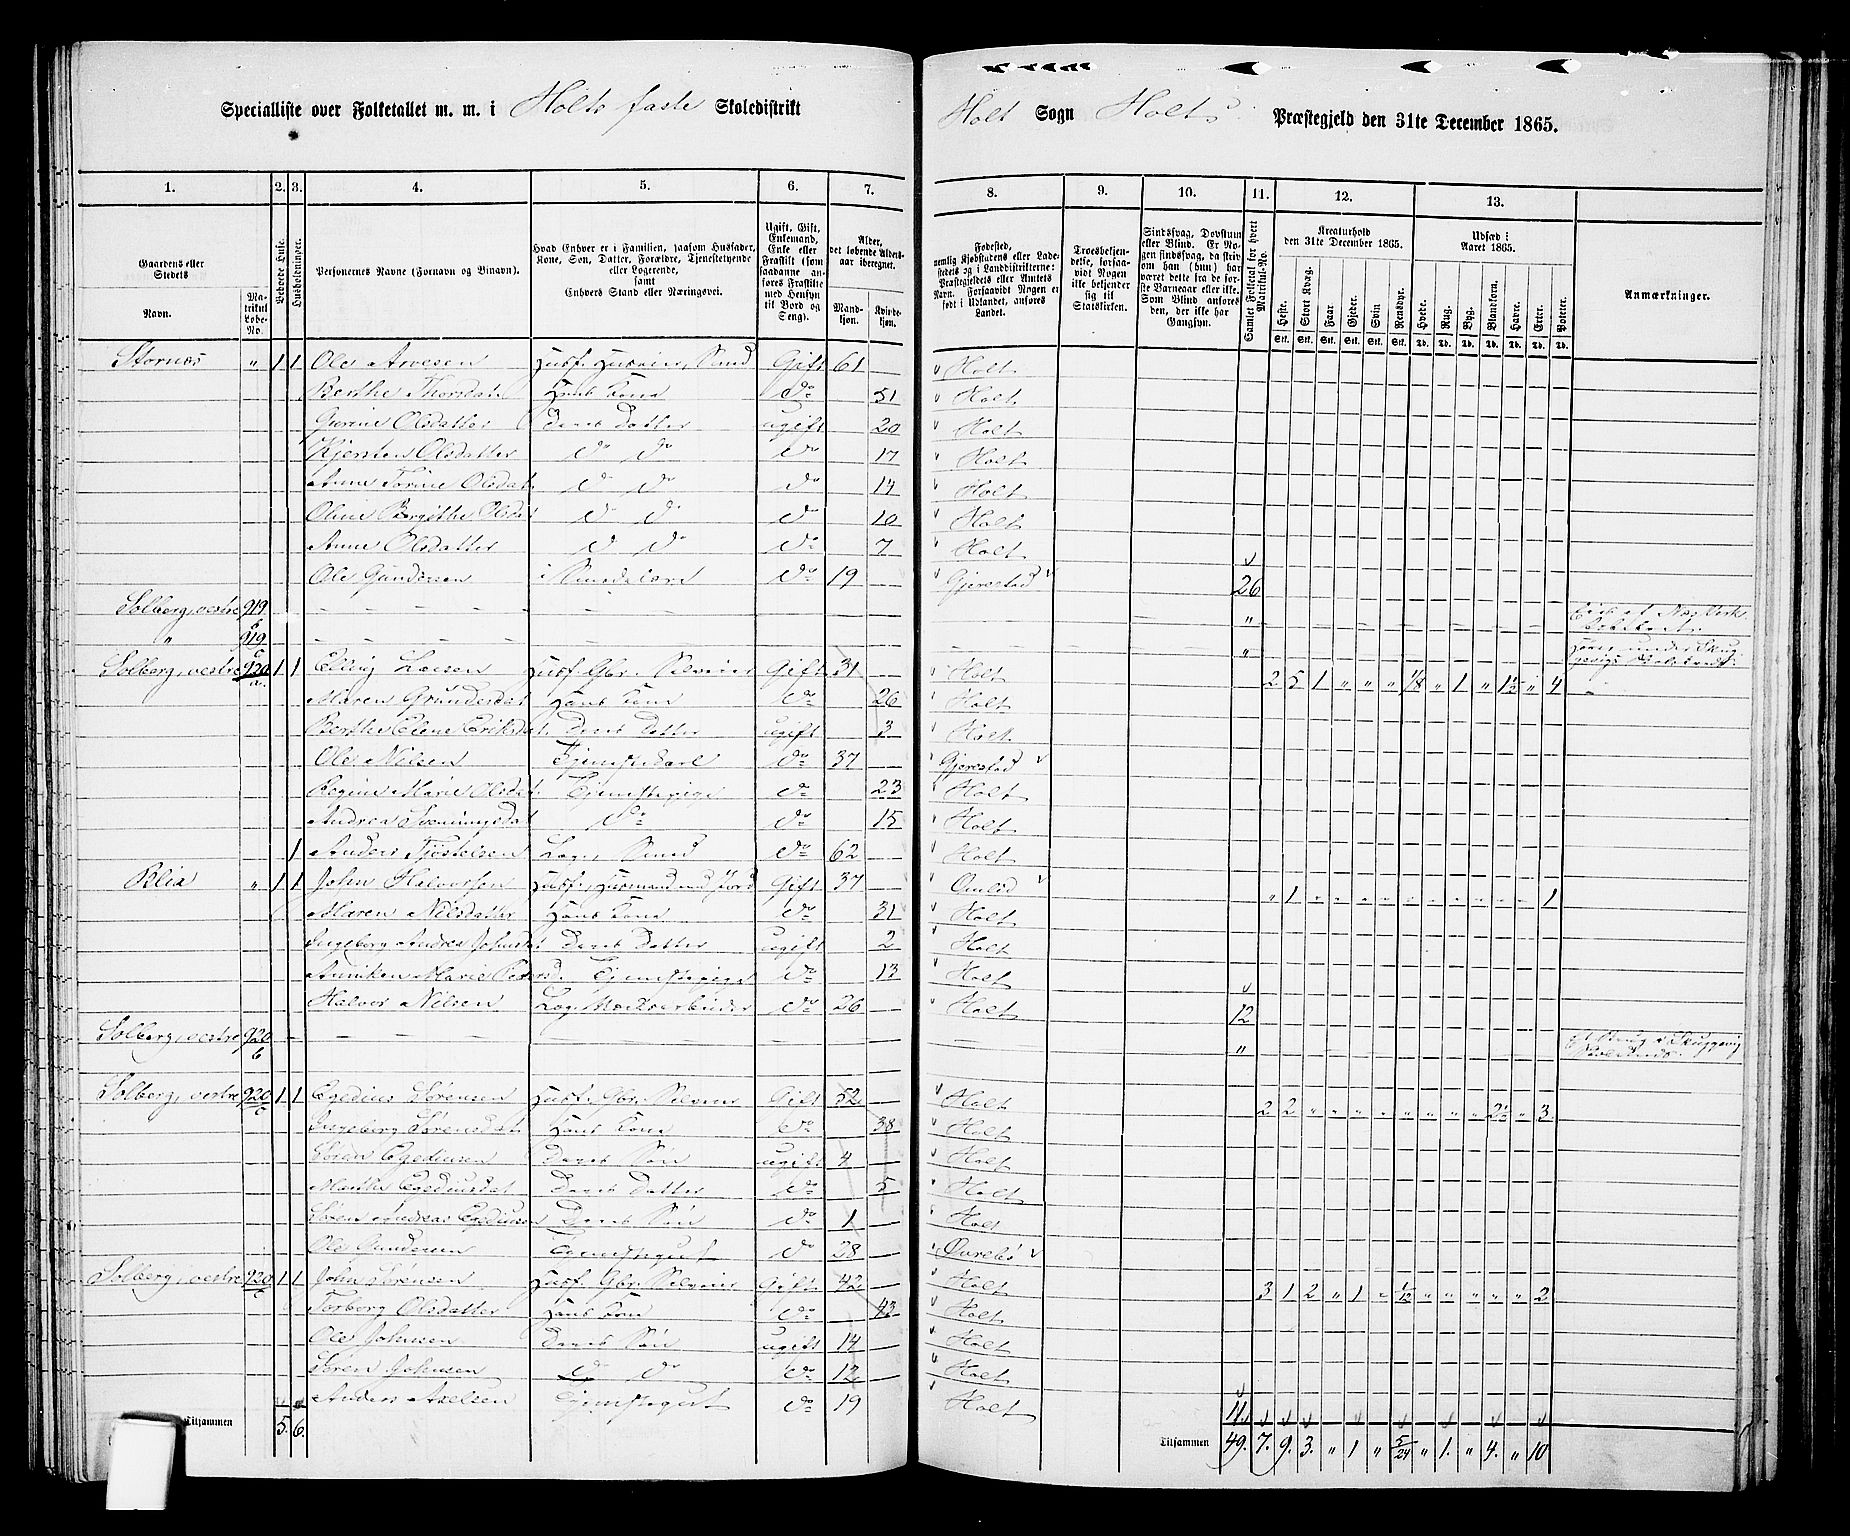 Specialliste over Folketallet m. m. i Holts faste Skoledistrikt
Holt Sogn Holts Præstegjeld den 31te December 1865.
1. 2. 3. 4. 5. 6. 7. 8. 9. 10. 11. 12. 13.
Gaardens eller Stedets
Navn.
Matrikul Løbe-No.
Beboede Huse.
Husholdninger.
Personernes Navne (Fornavn og Tilnavn).
Hvad Enhver er i Familien, saasom Husfader, Kone, Søn, Datter, Forældre, Tjenestetyende eller Logerende, samt Enhvers Stand eller Næringsvei.
Ugift, Gift, Enkemand, Enke eller Fraskilt
Alder, det løbende Aldersaar iberegnet.
Mandkjøn. Kvindekjøn.
Fødested,
Troesbekjendelse, forsaavidt Nogen ikke bekjender sig til Statskirken.
Sindssvag, Døvstum eller Blind.
Samlet Folketal for hvert Matrikul-No.
Kreaturhold den 31te December 1865.
Udsæd i Aaret 1865.
Heste. Stort Kvæg. Faar. Gjeder. Svin. Rensdyr. Hvede. Rug. Byg. Blandkorn. Havre. Erter. Poteter.
Anmærkninger.
Stornæs " 1 1 Ole Arvesen Husf. Husmand, Smed Gift 61 Holt
Berthe Thorsdat. Hans Kone do 51 Holt
Gurine Olsdatter Deres Datter ugift 20 Holt
Kjersten Olsdatter do do do 17 Holt
Anne Torine Olsdat. do do do 14 Holt
Oline Birgitthe Olsdat do do do 10 Holt
Anne Olsdatter do do do 7 Holt
Ole Gundersen Smedelære do 19 Gjerestad 26
Solberg, vestre 919 b
" 919 c
Solberg, vestre 920 a. 1 1 Elling Larsen Husf. Gbr. Selveier Gift 31 Holt 2 5 1 " " " 1/8 " 1 " 1½ " 4
Maren Gundersdat Hans Kone do 26 Holt
Berthe Elene Eriksdat. Deres Datter ugift 3 Holt
Ole Nilsen Tjenestekarl do 37 Gjerestad
Regine Marie Olsdat. Tjenestepige do 23 Holt
Andrea Sveningsdat do do 15 Holt
1 Anders Tjøstelsen Loge, Smed do 62 Holt
Blia " 1 1 John Halvorsen Husf., Husmand med Jord Gift 37 Omlid " 1 " " " " " " " " " " 1
Maren Nilsdatter Hans Kone do 31 Holt
Ingeborg Andrea Johnsdat Deres Datter ugift 2 Holt
Anniken Marie Pedersd. Tjenestepige do 13 Holt
Halvor Nilsen Loge do 26 Holt 12
Solberg, vestre 920 b
Solberg, vestre 920 c 1 1 Egedius Sørensen Husf. Gbr. Selveier Gift 52 Holt 2 2 " " " " " " " " 2½ " 3
Ingeborg Sørensdat. Hans Kone do 38 Holt
Søren Egediusen Deres Søn ugift 4 Holt
Marthe Egediusdat Deres Datter do 5 Holt
Søren Andreas Egediusen Deres Søn do 1 Holt
Ole Gundersen Tjenestegut do 28 Øvrebø
Solberg, vestre 920 1 1 John Sørensen Husf. Gbr. Selveier Gift 42 Holt 3 1 2 " 1 " 1/12 " " " " " 2
Torborg Olsdatter Hans Kone do 43 Holt
Ole Johnsen Deres Søn ugift 14 Holt
Søren Johnsen do do do 12 Holt
Anders Axelsen Tjenestegut do 19 Holt 11
Tilsammen 5. 6.
Tilsammen 49. 7. 9. 3. " 1 " 5/24 " 1. " 4. " 10